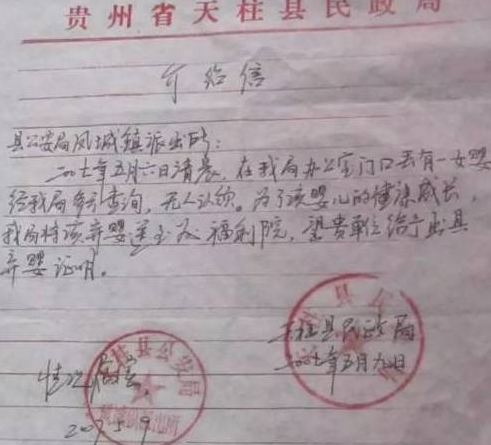 贵州省天柱县民政局
介绍信
县公安局凤城镇派出所:
二00七年五月六日清晨,在我局办公室门口丢有一女婴
经我局多方查询,无人认领。为了该婴儿的健康成长,
我局将该弃婴送至 福利院,望贵单位给予出具
弃婴证明。
天柱县民政局
二00七年五月九日
情况属实
2007.5.9
天柱县公安局
凤城镇派出所